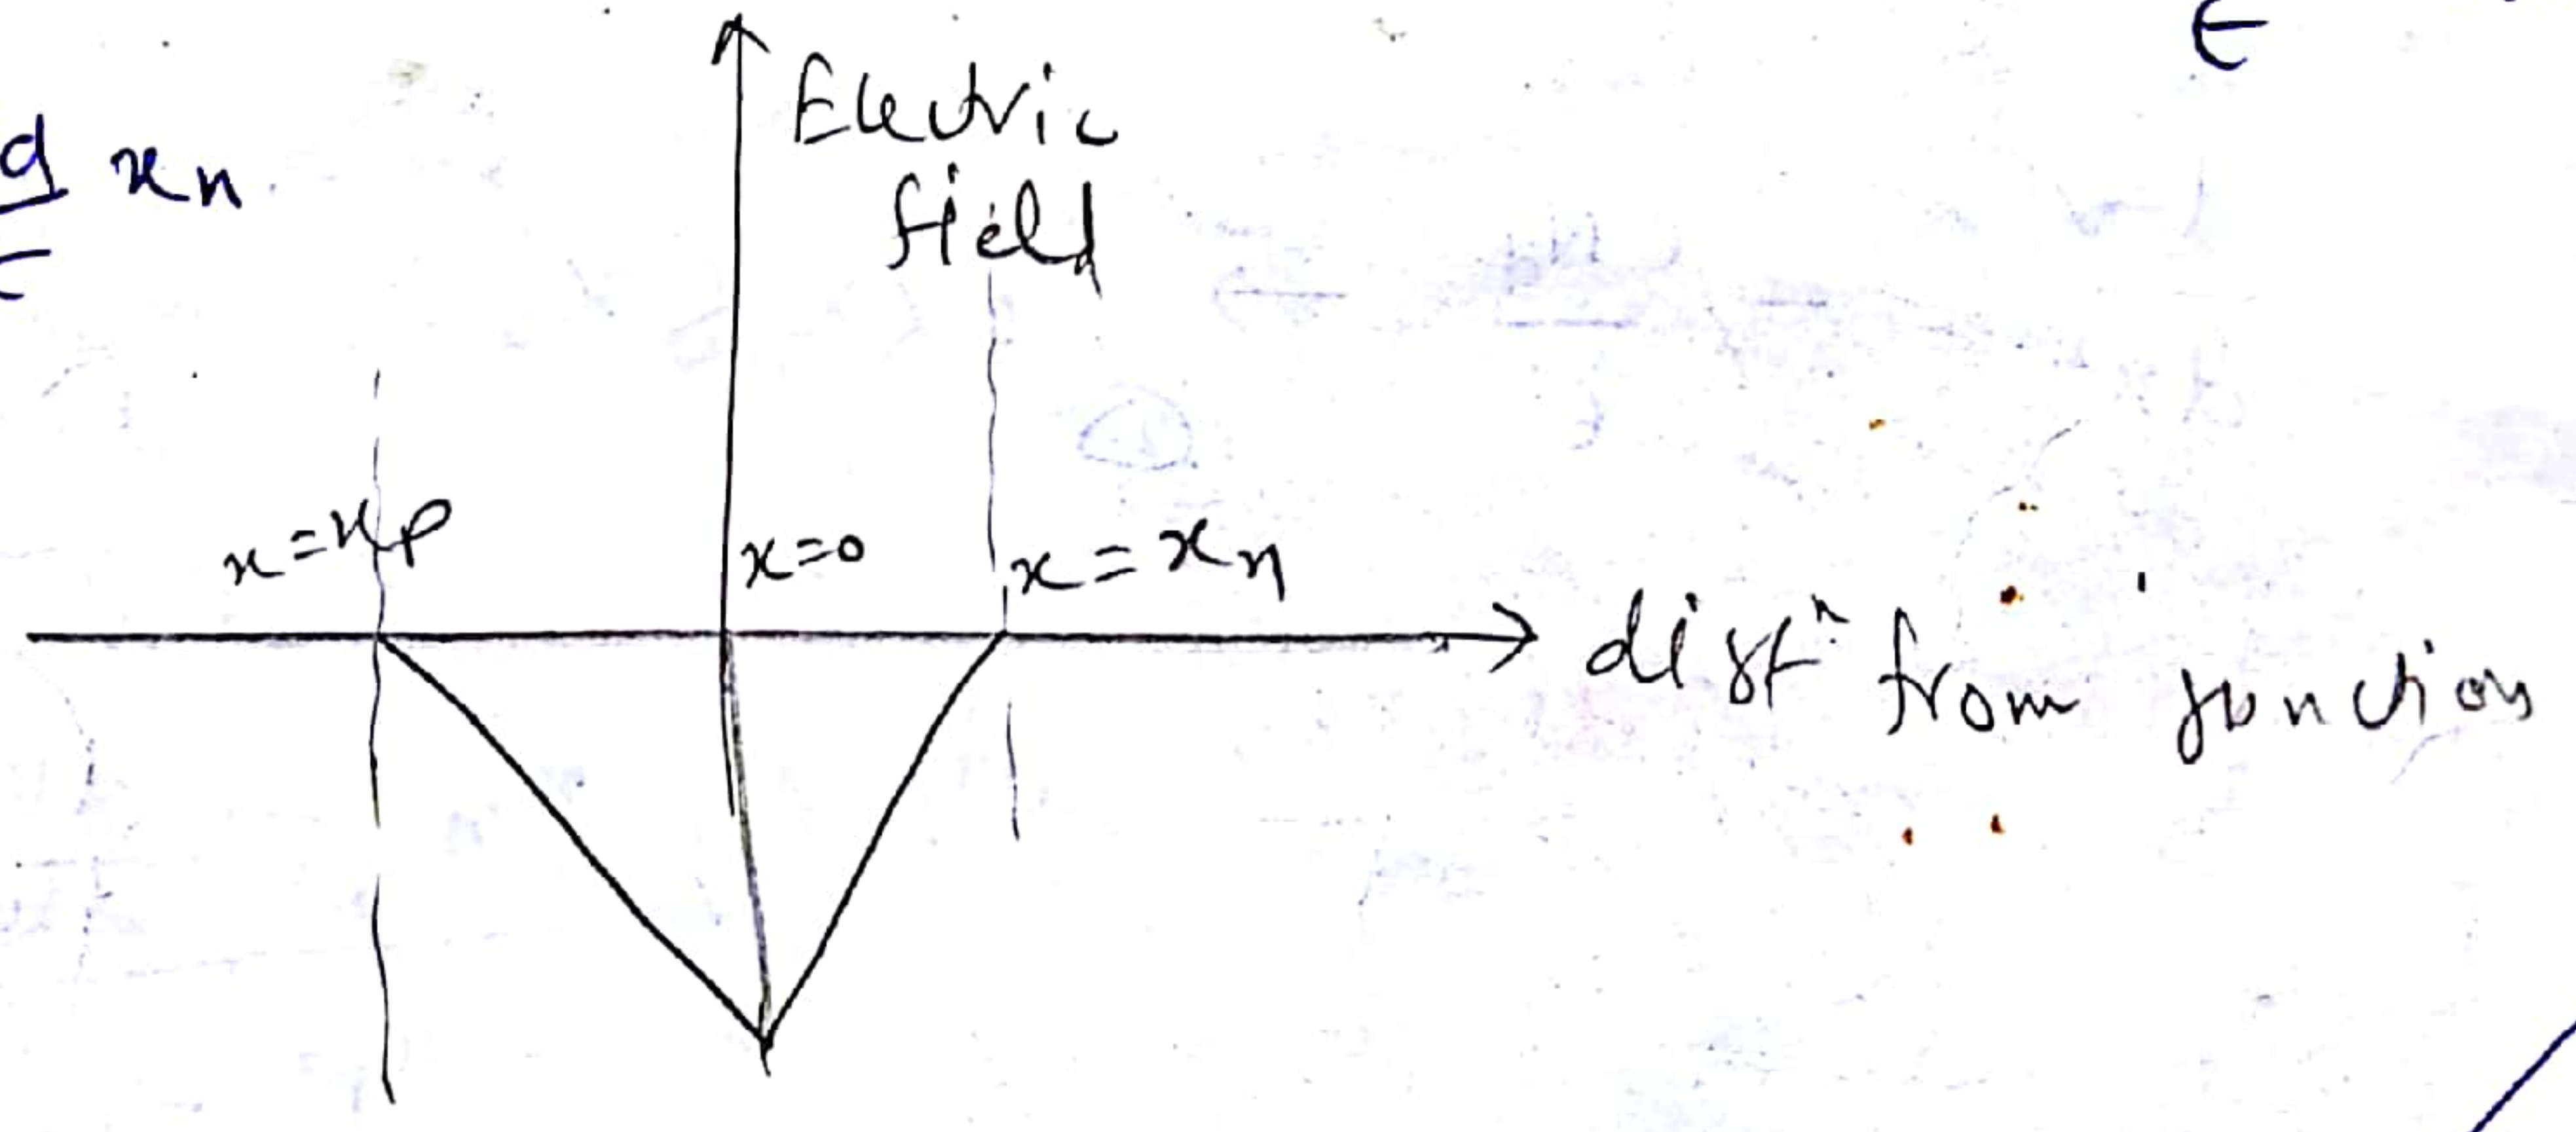 Electric
field
d xn
ε
ε
x=xp
x=0
x=xn
distn from junction